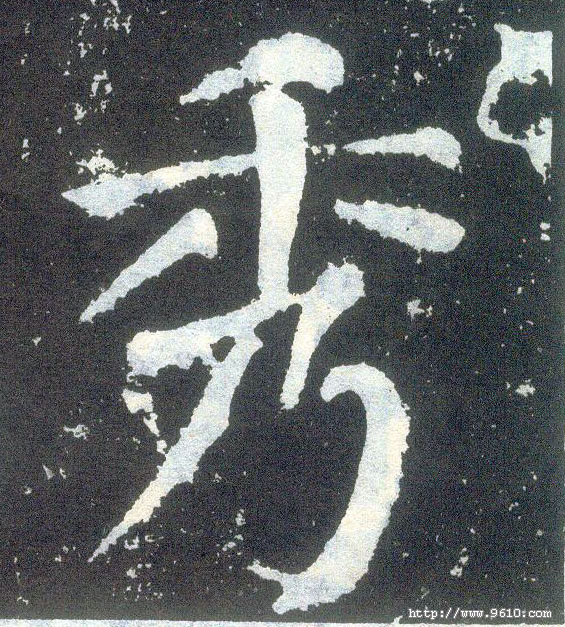 秀
http://www.9610.com